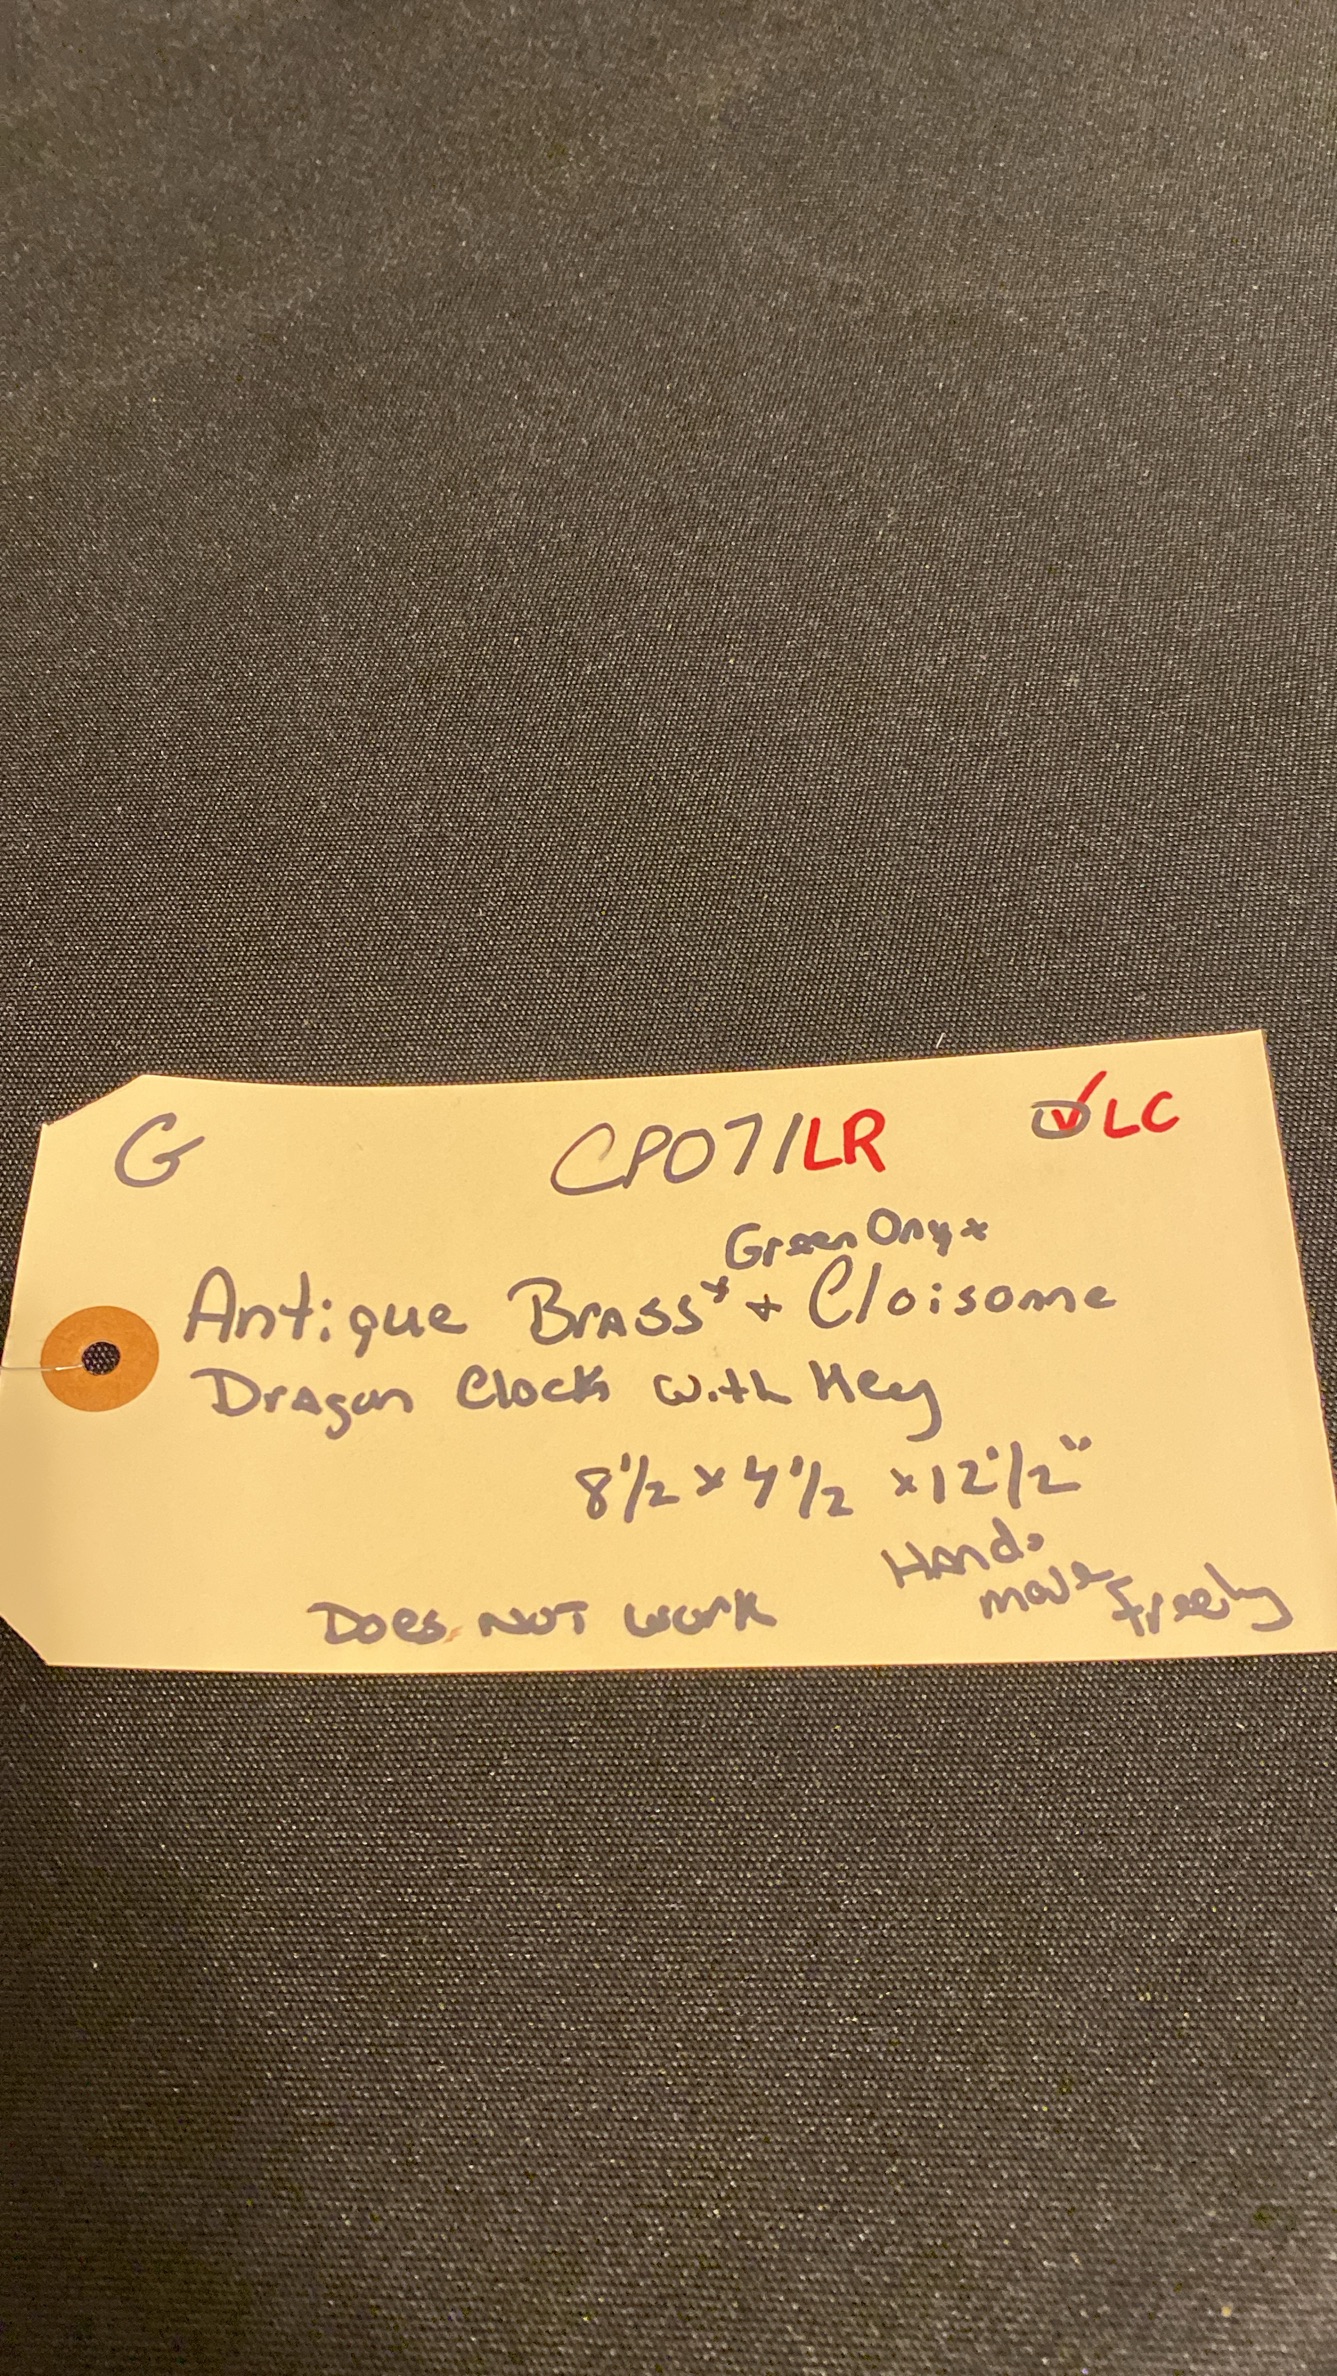 G CP071LR ✓LC
Green Onyx
Antique Brass* + Cloisome
Dragon Clock with Key
8 1/2 x 4 1/2 x 12 1/2"
Hands
Does Not Work move Freely